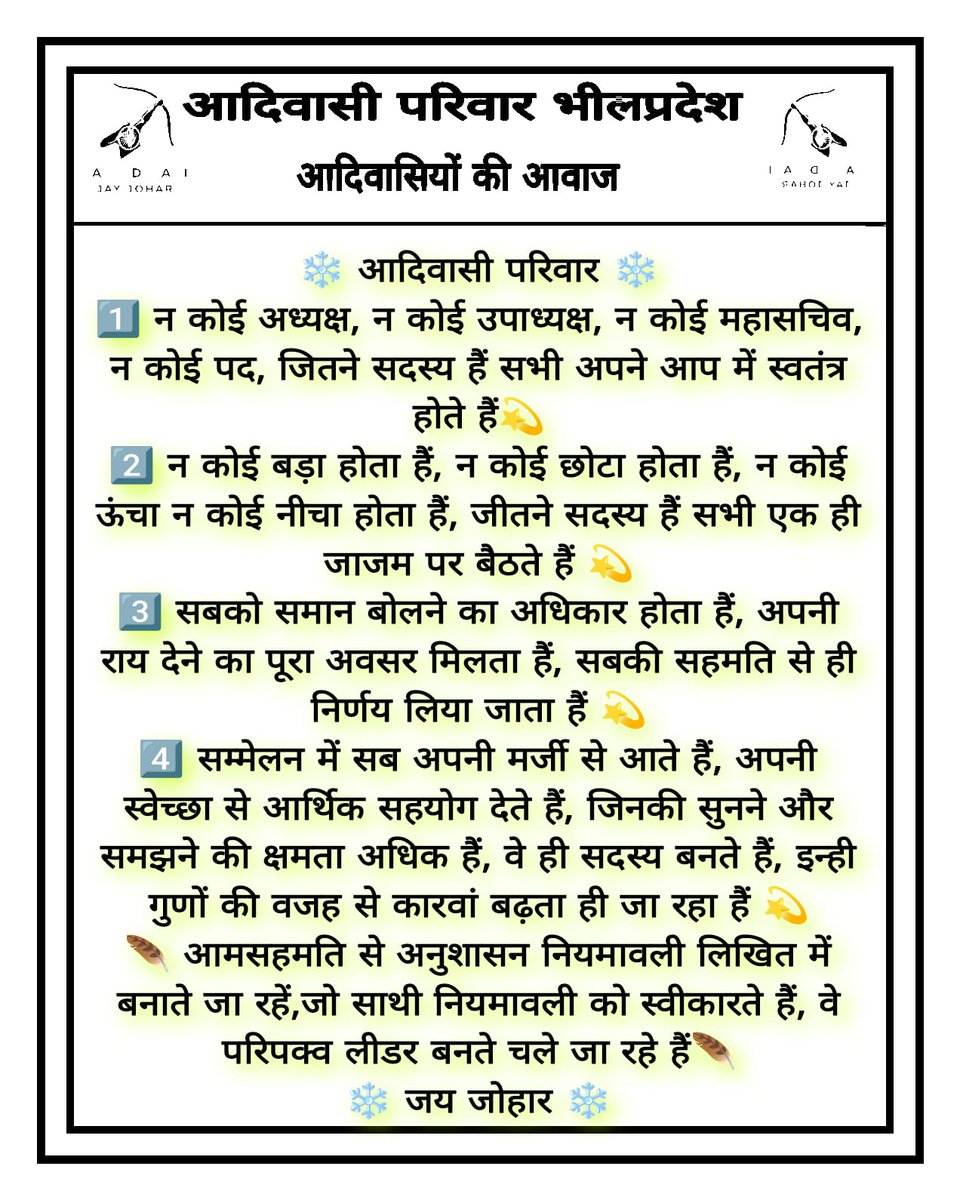 आदिवासी परिवार भीलप्रदेश
आदिवासियों की आवाज
A DAI
JAY JOHAR
❄️ आदिवासी परिवार ❄️
1️⃣ न कोई अध्यक्ष, न कोई उपाध्यक्ष, न कोई महासचिव,
न कोई पद, जितने सदस्य हैं सभी अपने आप में स्वतंत्र
होते हैं💫
2️⃣ न कोई बड़ा होता हैं, न कोई छोटा होता हैं, न कोई
ऊंचा न कोई नीचा होता हैं, जीतने सदस्य हैं सभी एक ही
जाजम पर बैठते हैं 💫
3️⃣ सबको समान बोलने का अधिकार होता हैं, अपनी
राय देने का पूरा अवसर मिलता हैं, सबकी सहमति से ही
निर्णय लिया जाता हैं 💫
4️⃣ सम्मेलन में सब अपनी मर्जी से आते हैं, अपनी
स्वेच्छा से आर्थिक सहयोग देते हैं, जिनकी सुनने और
समझने की क्षमता अधिक हैं, वे ही सदस्य बनते हैं, इन्ही
गुणों की वजह से कारवां बढ़ता ही जा रहा हैं 💫
🪶 आमसहमति से अनुशासन नियमावली लिखित में
बनाते जा रहें,जो साथी नियमावली को स्वीकारते हैं, वे
परिपक्व लीडर बनते चले जा रहे हैं🪶
❄️ जय जोहार ❄️